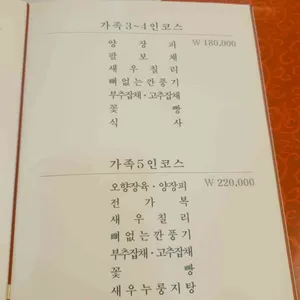 가족3~4인코스
양장피 ₩ 180,000
팔보채
새우칠리
뼈없는깐풍기
부추잡채·고추잡채
꽃빵
식사
가족5인코스
오향장육·양장피 ₩ 220,000
전가복
새우칠리
뼈없는깐풍기
부추잡채·고추잡채
꽃빵
새우누룽지탕